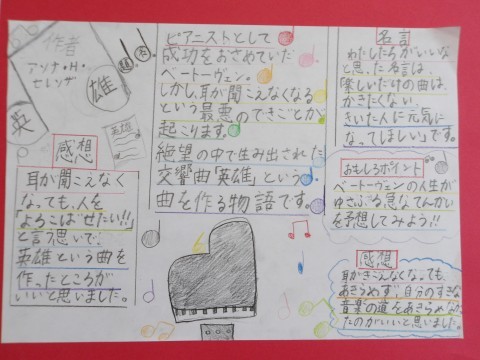 作者
アンナ・H・
セレンザ
英
雄
英雄
ピアニストとして
成功をおさめていた
ベートーヴェン。
しかし、耳が聞こえなくなる
という最悪のできごとが
起こります。
絶望の中で生み出された
交響曲「英雄」という
曲を作る物語です。
感想
耳が聞こえなく
なっても、人を
「よろこばせたい!!」
と言う思いで、
英雄という曲を
作ったところが
いいと思いました。
名言
わたしたちがいいな
と思った名言は、
「楽しいだけの曲は、
かきたくない、
きいた人に元気に
なってほしい」です。
おもしろポイント
ベートーヴェンの人生が
ゆさぶる急なてんかい
を予想してみよう!!
感想
耳がきこえなくなっても、
あきらめず、自分のすきな
音楽の道をあきらめなかっ
たのがいいと思いました。